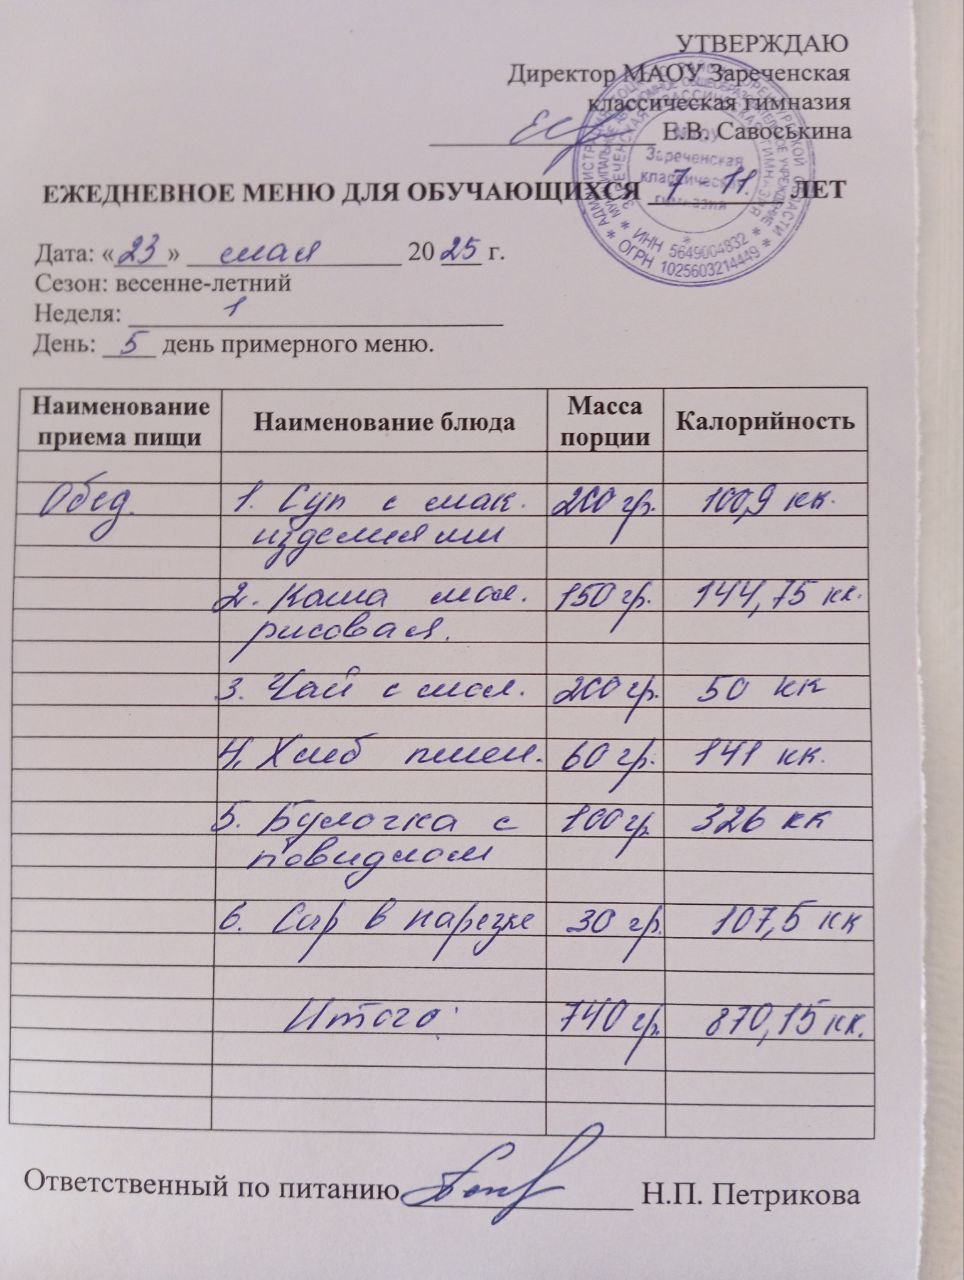 УТВЕРЖДАЮ
Директор МАОУ Зареченская
классическая гимназия
Е.В. Савоськина
ЕЖЕДНЕВНОЕ МЕНЮ ДЛЯ ОБУЧАЮЩИХСЯ 7 11 ЛЕТ
МАОУ
Зареченская
классическая
гимназия
ИНН 5649004832
ОГРН 1025603214449
Дата: «23» мая 2025 г.
Сезон: весенне-летний
Неделя: 1
День: 5 день примерного меню.
Наименование приема пищи Наименование блюда Масса порции Калорийность
Обед. 1. Суп с мак. 200 гр. 100,9 кк.
изделиями
2. Каша мол. 150 гр. 144,75 кк.
рисовая.
3. Чай с мол. 200 гр. 50 кк
4. Хлеб пшен. 60 гр. 141 кк.
5. Булочка с 100 гр. 326 кк
повидлом
6. Сыр в нарезке 30 гр. 107,5 кк
Итого: 740 гр. 870,15 кк.
Ответственный по питанию Н.П. Петрикова